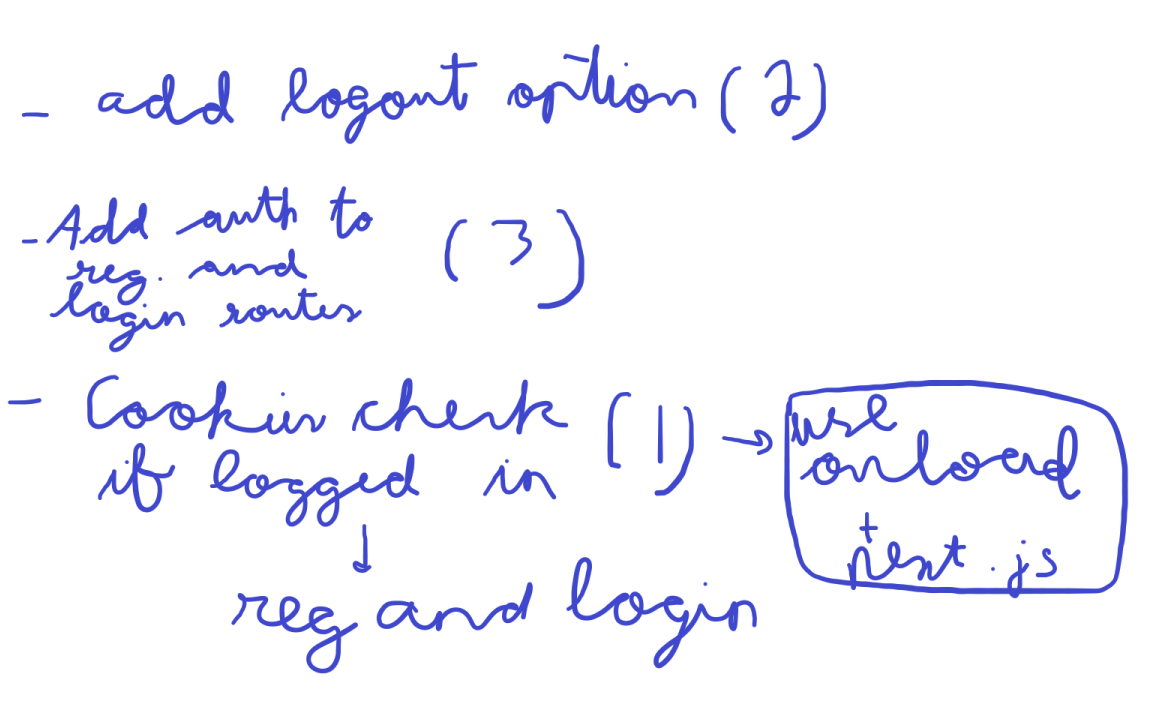 - add logout option (2)
- Add auth to (3)
reg. and
login routes
- Cookies check (1) → use
if logged in onload
↓ test.js
reg and login